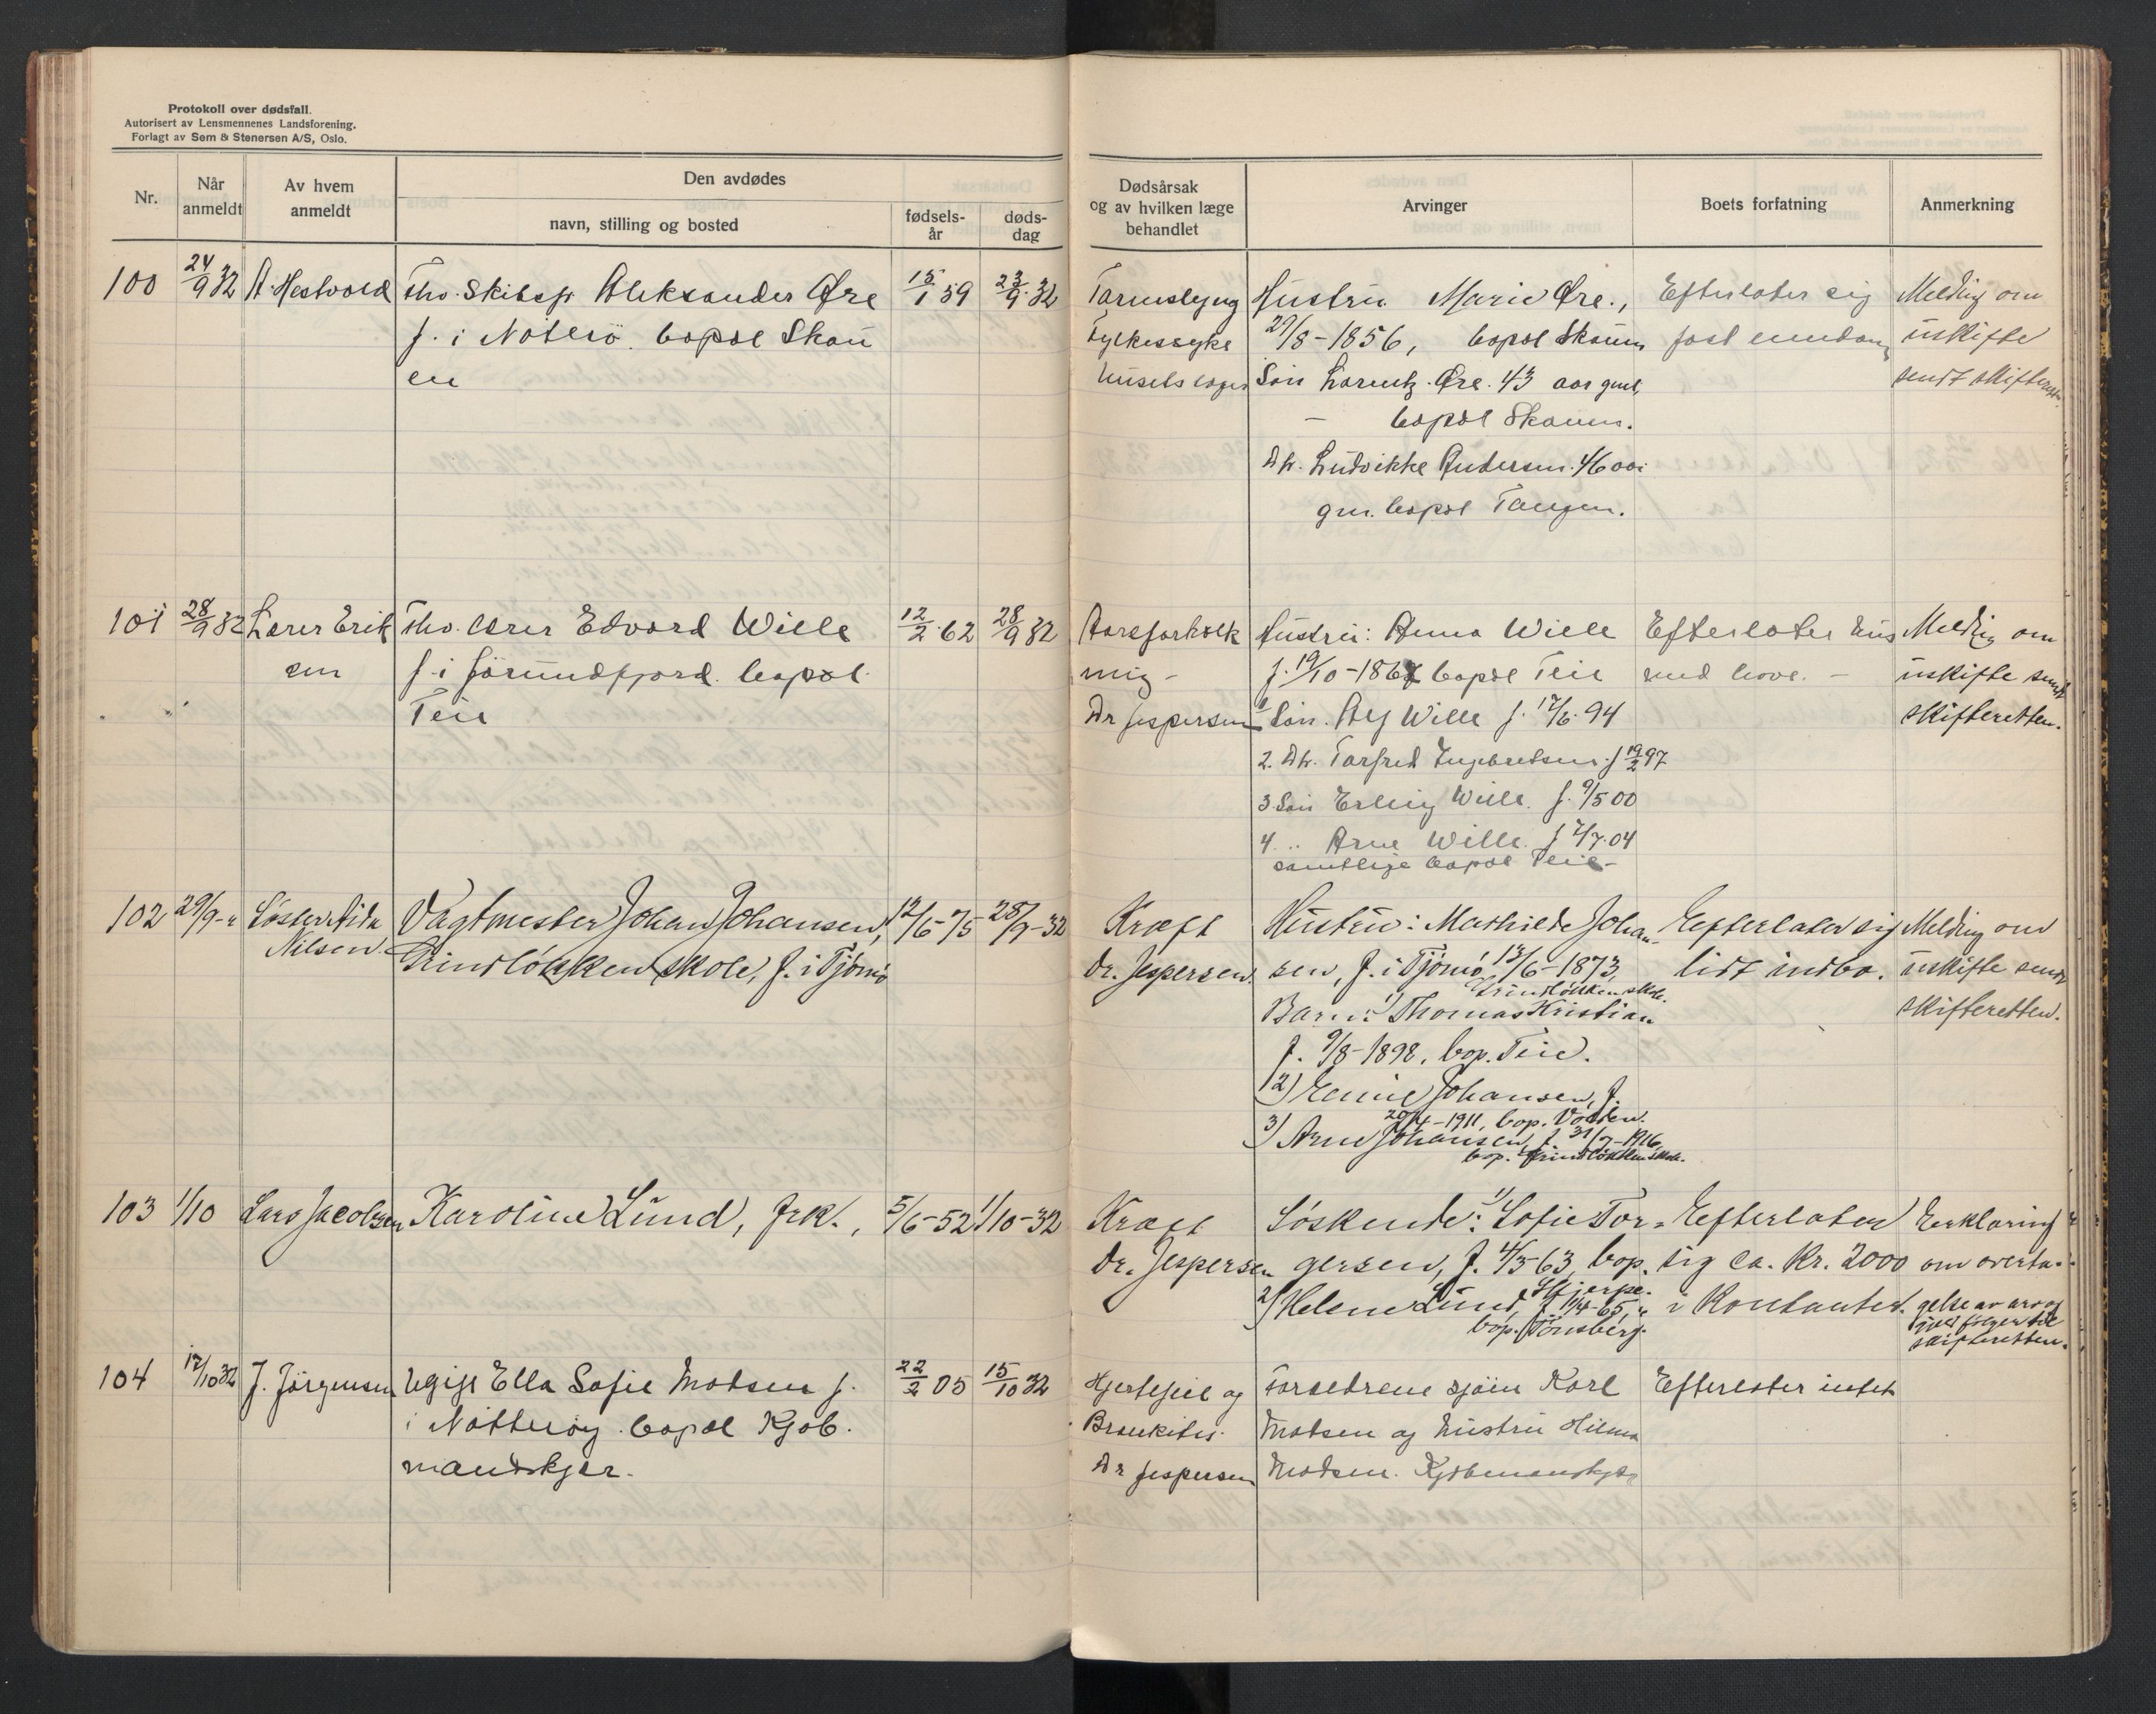 Protokoll over dødsfall.
Autorisert av Lensmennenes Landsforening.
Forlagt av Sem & Stenersen A/S, Oslo.
Nr.
Når anmeldt
Av hvem anmeldt
Den avdødes
navn, stilling og bosted
fødsels-år
døds-dag
Dødsårsak og av hvilken læge behandlet
Arvinger
Boets forfatning
Anmerkning
100 24/9 32 A. Hestvold Fhv. Skibsf. Aleksander Øre 15/1 59 23/9 32
f. i Nøterö. bopæl Skau
en
Tarmslyng
Fylkessyke
husets læger
Hustru Marie Øre.,
29/8-1856, bopæl Skauen
Sön Lorentz Øre. 43 aar gml,
- bopæl Skauen.
Dtr. Ludvikke Andersen. 46 aar
gm. bopæl Tangen.
Efterlater sig
fast eiendom
Melding om
uskifte
sendt skifteretten.
101 28/9 32 Lærer Erik
sen
Fhv. lærer Edvard Wille 12/2 62 28/9 32
f. i Jörundfjord. bopæl
Teie
Aareforkalk
ning -
Dr Jespersen
Hustru: Anna Wille
f. 19/10-1867 bopæl Teie
1 Sön. Alf Wille f. 17/6. 94
2. Dtr. Torfred Engebretsen f 19/2 97
3. Sön Erling Wille. f. 9/5 00
4. .. Arne Wille. f 7/7. 04
samtlige bopæl Teie -
Efterlater hus
med have. -
Melding om
uskifte sendt
skifteretten.
102 29/9 - " Söster Aida
Nilsen.
Vagtmester Johan Johansen, 12/6-75 28/9-32
Grindlökken skole, f. i Tjömö
Kræft
Dr. Jespersen.
Hustru: Mathilde Johan-
sen, f. i Tjömö 13/6-1873,
Grindlökken skole.
Barn: 1) Thomas Kristian
f. 9/8-1898, bop. Teie.
2) Johansen, f.
20/4-1911, bop. Volden.
3) Arne Johansen, f. 31/7-1916,
bop. Grindlökken skole.
Efterlater sig
lidt indbo.
Melding om
uskifte sendt
skifteretten.
103 1/10 Lars Jacobsen Karoline Lund, frk., 5/6-52 1/10-32
Kræft
Dr. Jespersen
Söskende: 1) Sofie Tor-
gersen, f. 4/5 63, bop.
2) Helene Lund, f. 14/4-65,
bop. Tönsberg.
Efterlater
sig ca. Kr. 2000
i Kontanter.
Erklæring
om overta-
gelse av arv og
skifteretten.
104 17/10 32 J. Jörgensen Ugift Ella Sofie Madsen f. 22/2 05 15/10 32
i Nötteröy. bopæl Kjöb.
mandskjær.
Hjertefeil og
Bronkitis.
Dr Jespersen
Forældrene sjöm Karl
Madsen og hustru Hilma
Madsen. Kjöbmandskjær
Efterlater intet